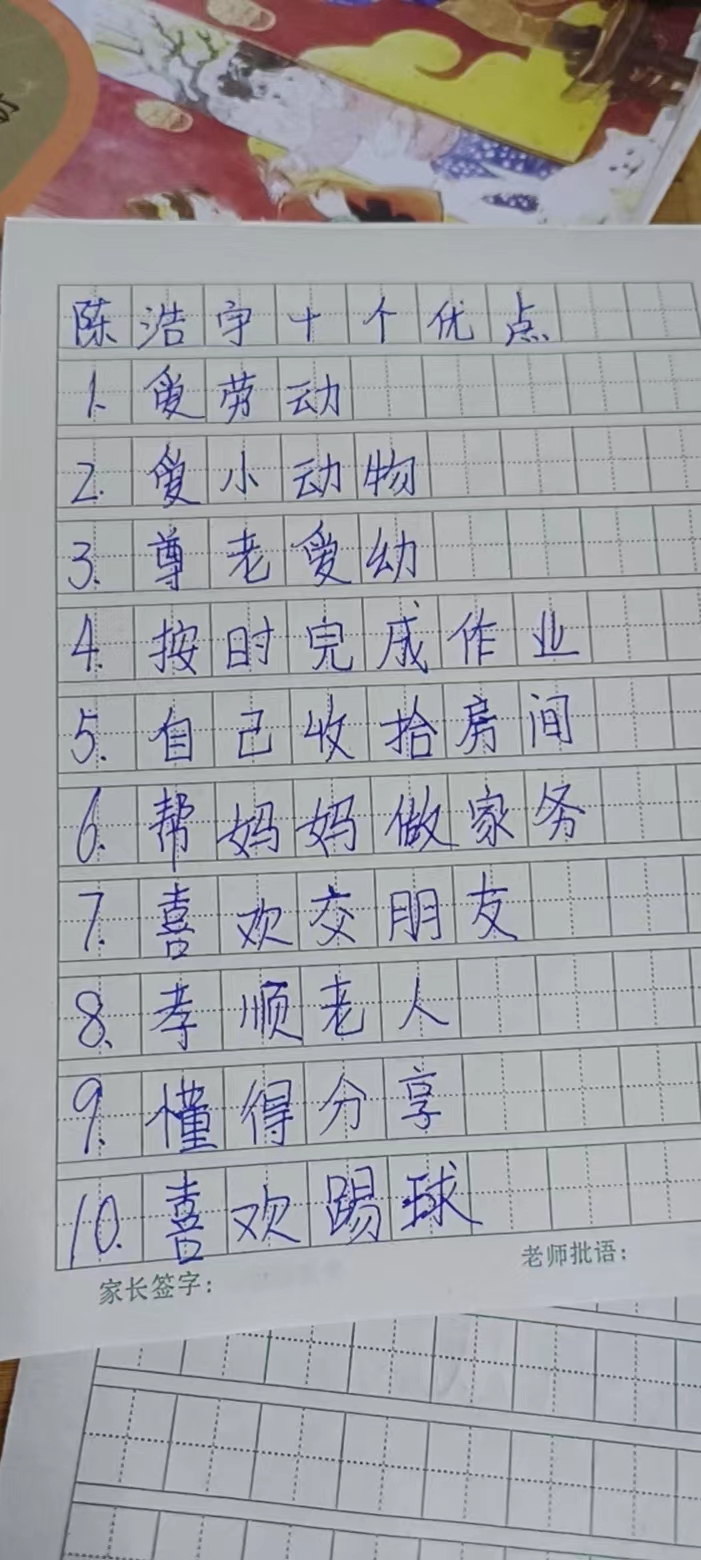 陈浩宇十个优点
1. 爱劳动
2. 爱小动物
3. 尊老爱幼
4. 按时完成作业
5. 自己收拾房间
6. 帮妈妈做家务
7. 喜欢交朋友
8. 孝顺老人
9. 懂得分享
10. 喜欢踢球
家长签字： 老师批语：